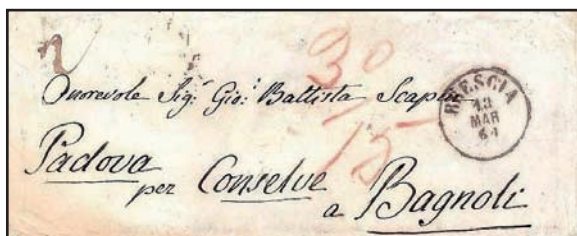 2
30
Onorevole Sig: Gio: Battista
15
BRESCIA
13
MAR
61
Padova
per Conselve
a Bagnoli